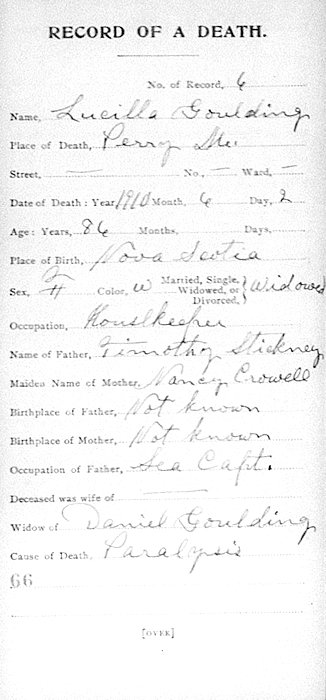 RECORD OF A DEATH.
No. of Record, 6
Name, Lucilla Goulding
Place of Death, Perry Me.
Street, — No., — Ward, —
Date of Death: Year, 1910 Month, 6 Day, 2
Age: Years, 86 Months, Days,
Place of Birth, Nova Scotia
Sex, F Color, W Married, Single, Widowed, or Divorced, } Widowed
Occupation, Houslkeeper
Name of Father, Timothy Stickney
Maiden Name of Mother, Nancy Crowell
Birthplace of Father, Not known
Birthplace of Mother, Not known
Occupation of Father, Sea Capt.
Deceased was wife of —
Widow of Daniel Goulding
Cause of Death, Paralysis
66
[OVER]